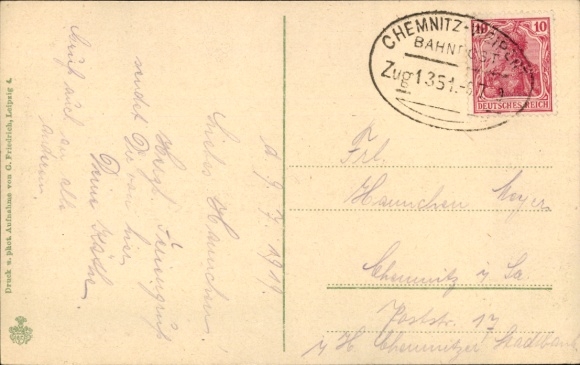 CHEMNITZ-
BAHNPOST
Zug 1351.
10 10
DEUTSCHES REICH
d. 9. 7. 1919.
Liebes Hannchen!
Herzl.
sendet Dir von hier
Deine Käthe.
Gruß auch an alle
andern.
Frl.
Hannchen Meyer
Chemnitz i/Sa.
Poststr. 17
Chemnitzer Stadtbank
Druck u. phot. Aufnahme von G. Friedrich, Leipzig 4.